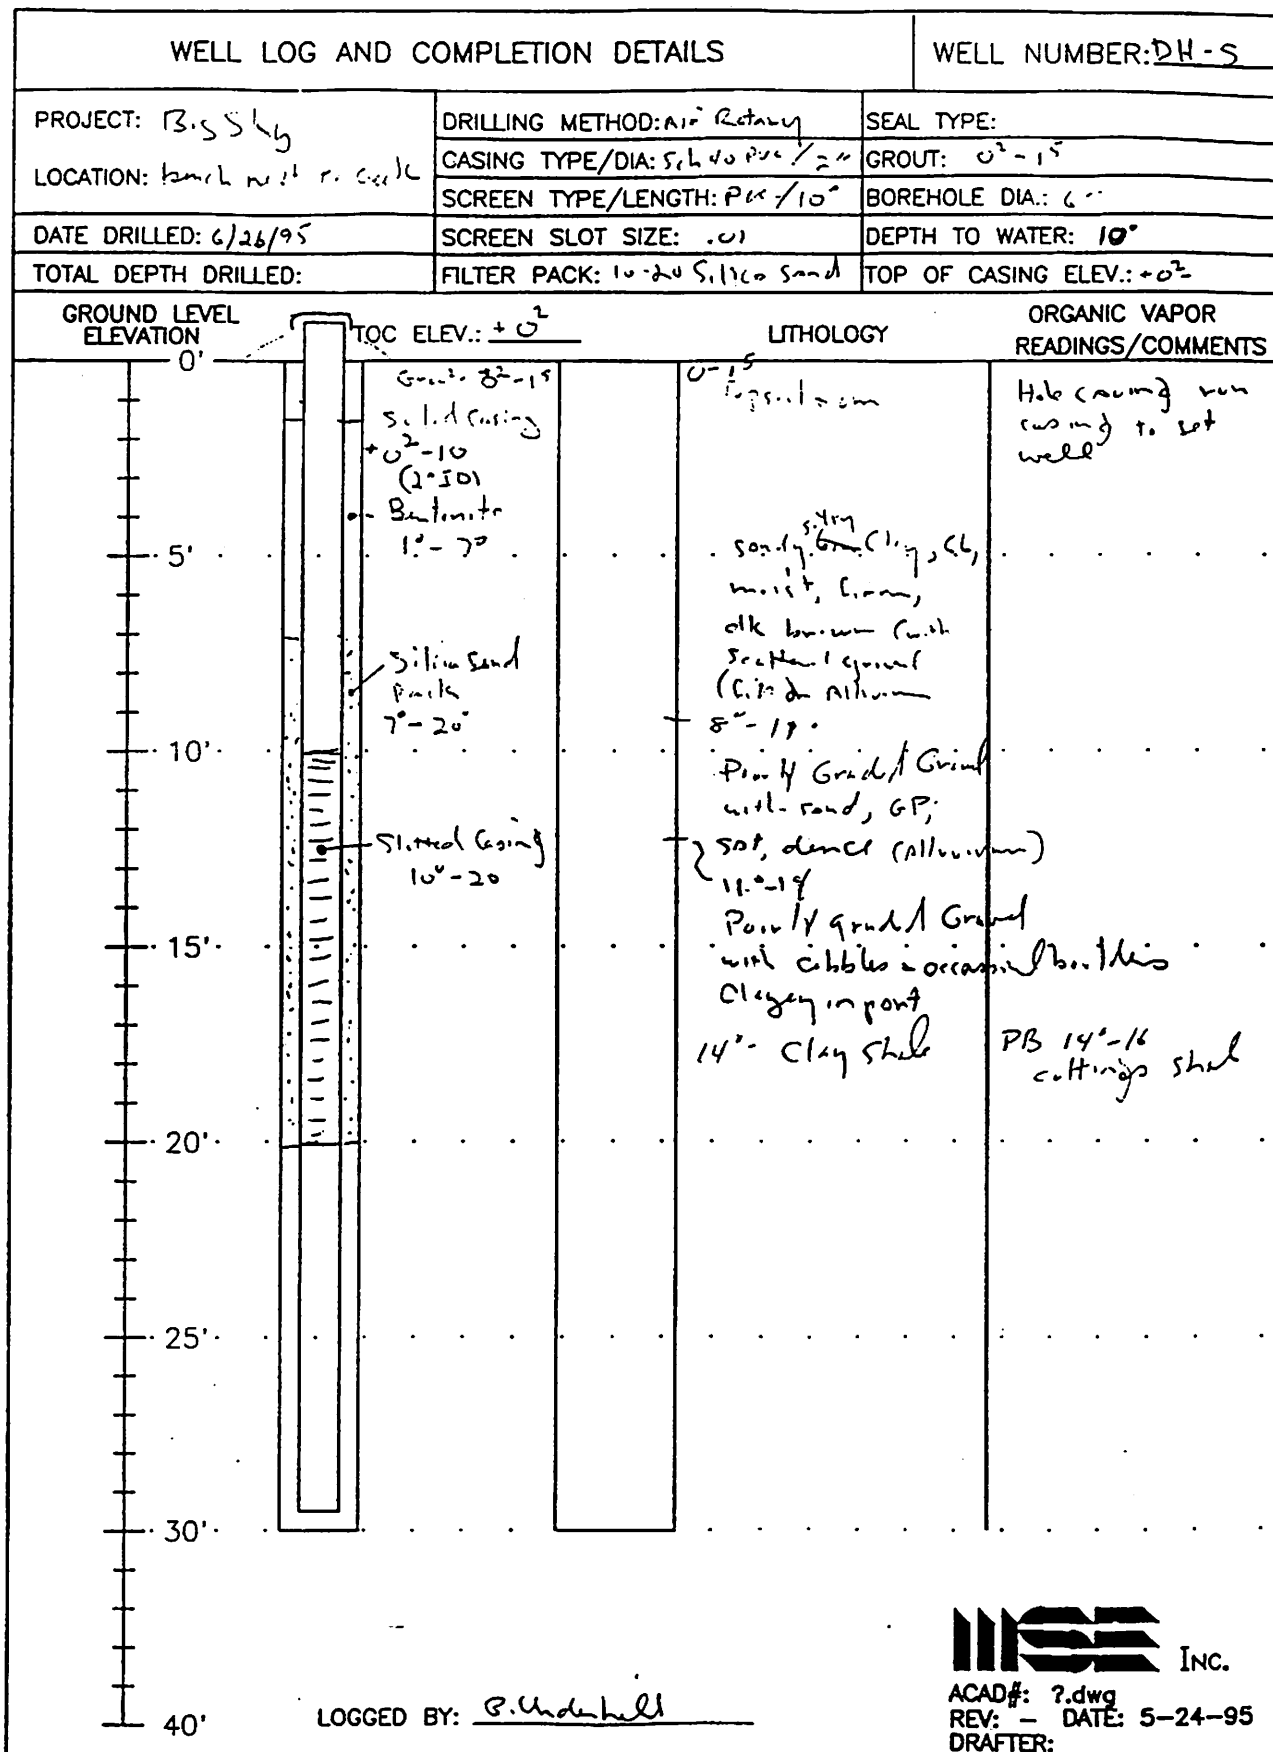 WELL LOG AND COMPLETION DETAILS
WELL NUMBER: DH-5
PROJECT: Big Sky
LOCATION: bench
DRILLING METHOD: Air Rotary
CASING TYPE/DIA: Sch 40 PVC / 2"
SCREEN TYPE/LENGTH: PVC /10°
SEAL TYPE:
GROUT: 0² - 1⁵
BOREHOLE DIA.: 6"
DATE DRILLED: 6/26/95
SCREEN SLOT SIZE: .01
DEPTH TO WATER: 10°
TOTAL DEPTH DRILLED:
FILTER PACK: 10-20 Silica Sand
TOP OF CASING ELEV.: +0²
GROUND LEVEL
ELEVATION
TOC ELEV.: +0²
LITHOLOGY
ORGANIC VAPOR
READINGS/COMMENTS
0'
Grout -1⁵
solid casing
+0²-10
(2" ID)
Bentonite
- 7°
0-1⁵
Hole caving run
casing to set
well
5'
sandy silty Clay, CL,
moist, firm,
dk brown (with
scattered gravel
Alluvium
Silica Sand
pack
7°-20°
10'
Poorly Graded Gravel
with sand, GP,
sat, dence (Alluvium)
Slotted Casing
10°-20
Poorly graded Gravel
with cobbles - occassional boulders
Clayey in part
15'
14°- Clay Shale
PB 14°-16
cuttings shale
20'
25'
30'
40'
LOGGED BY: B. Underhill
MSE INC.
ACAD#: ?.dwg
REV: – DATE: 5-24-95
DRAFTER: